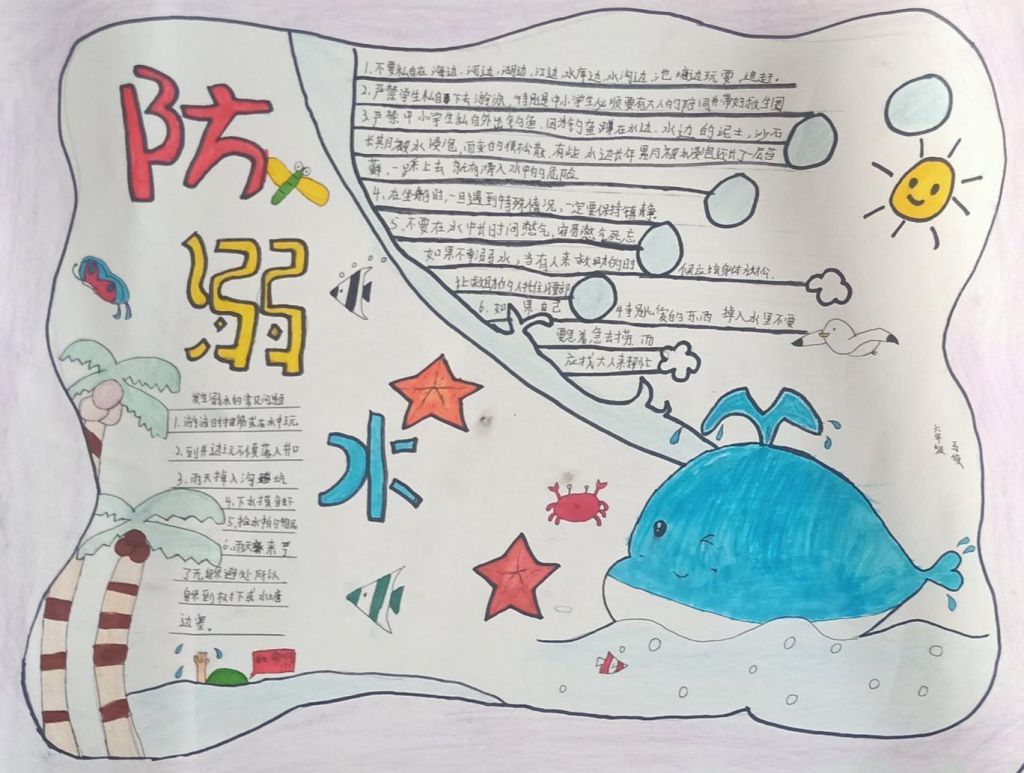 防
溺
水
1.不要私自在海边,河边,湖边,江边,水库边,水沟边,池塘边玩耍,追赶。
2.严禁学生私自下去游泳,特别是中小学生必须要有大人的陪同并带好救生圈
3.严禁中小学生私自外出钓鱼,因为钓鱼蹲在水边,水边的泥土,沙石
长期被水浸泡,而变的很松散,有些水边长年累月被水浸泡还长了一层苔
藓,一踩上去就有滑入水中的危险
4.在坐船时,一旦遇到特殊情况,一定要保持镇静
5.不要在水中长时间憋气,容易憋气死亡
如果不幸溺水,当有人来救助的时候应将身体放松
让救助的人托住腰部
6.如果自己特别心爱的东西掉入水里不要
要急着急去捞,而
应找大人来帮忙
发生溺水的常见问题
1.游泳时抽筋或在水中玩
2.到井边玩不慎落入井口
3.雨天掉入沟坑
4.下水摸鱼虾
5.捡水
6.雨天来了
了无躲避处所以
躲到树下或水塘
边。
六年级